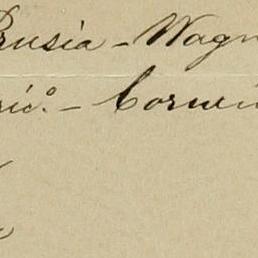 Prusia - Wagn
ric°. - Cornei